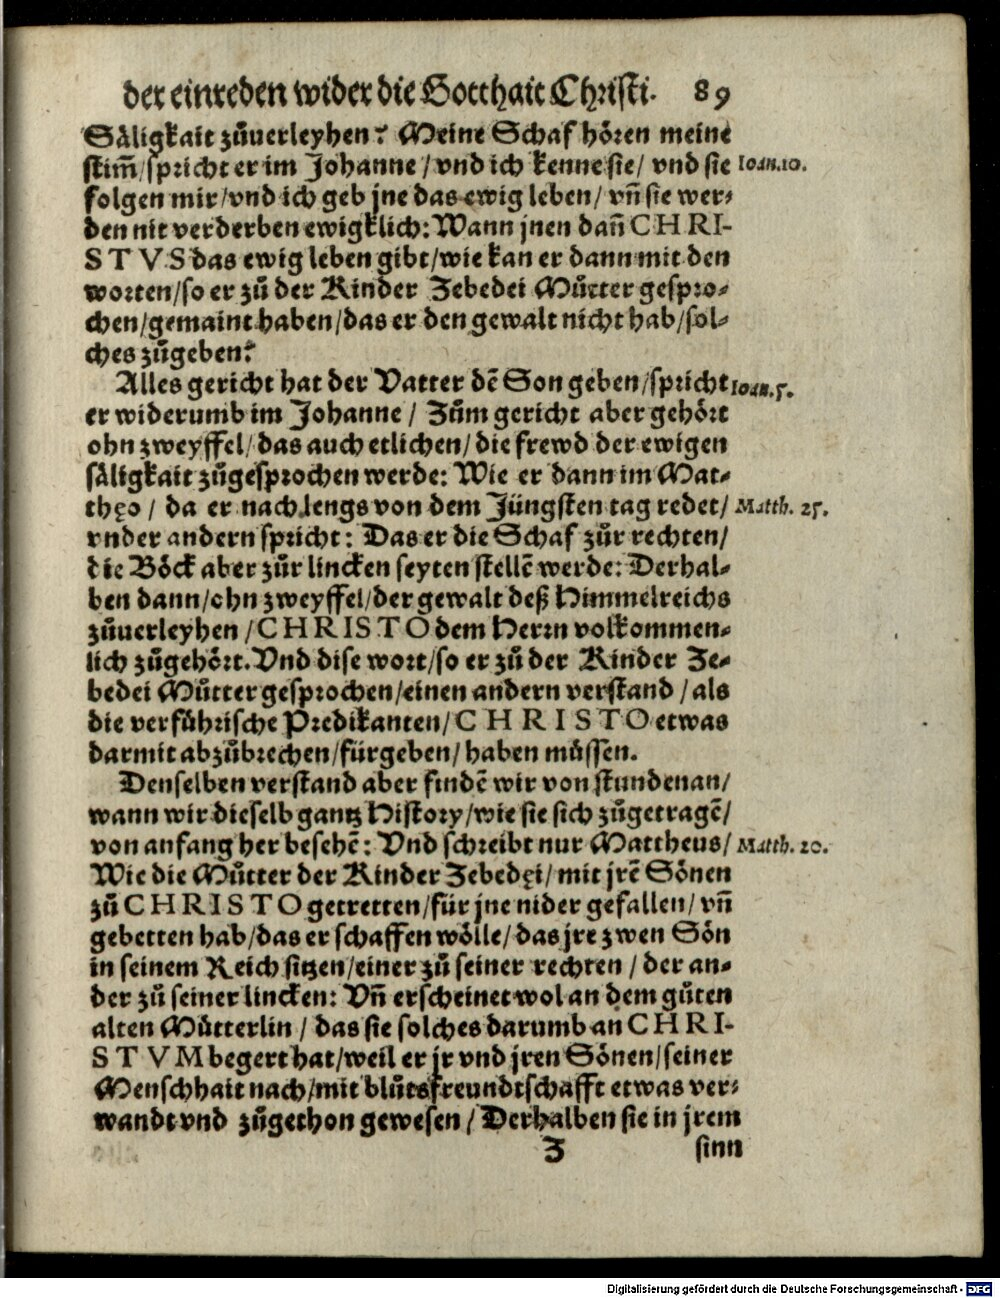 der einreden wider die Gotthait Christi. 89
Säligkait zůuerleyhen? Meine Schaf hören meine
stim̃/ spricht er im Johanne / vnd ich kenne sie / vnd sie Ioan.10.
folgen mir / vnd ich geb jne das ewig leben / vñ sie wer-
den nit verderben ewigklich: Wann jnen dañ CHRI-
STVS das ewig leben gibt / wie kan er dann mit den
worten / so er zů der Kinder Zebedei Můtter gespro-
chen / gemaint haben / das er den gewalt nicht hab / sol-
ches zůgeben?
Alles gericht hat der Vatter dẽ Son geben / spricht Ioan.5.
er widerumb im Johanne / Zům gericht aber gehört
ohn zweyffel / das auch etlichen / die frewd der ewigen
säligkait zůgesprochen werde: Wie er dann im Mat-
thęo / da er nach lengs von dem Jüngsten tag redet / Matth. 25.
vnder andern spricht: Das er die Schaf zůr rechten /
die Böck aber zůr lincken seyten stellẽ werde: Derhal-
ben dann / ohn zweyffel / der gewalt deß Himmelreichs
zůuerleyhen / CHRISTO dem Herrn volkommen-
lich zůgehört. Vnd dise wort / so er zů der Kinder Ze-
bedei Můtter gesprochen / einen andern verstand / als
die verführische Predikanten / CHRISTO etwas
darmit abzůbrechen / fürgeben / haben müssen.
Denselben verstand aber findẽ wir von stunden an /
wann wir dieselb gantz History / wie sie sich zůgetragẽ /
von anfang her besehẽ: Vnd schreibt nur Mattheus / Matth. 20.
Wie die Můtter der Kinder Zebedęi / mit jrẽ Sönen
zů CHRISTO getretten / für jne nider gefallen / vñ
gebetten hab / das er schaffen wölle / das jre zwen Sön
in seinem Reich sitzen / einer zů seiner rechten / der an-
der zů seiner lincken: Vñ erscheinet wol an dem gůten
alten Mütterlin / das sie solches darumb an CHRI-
STVM begert hat / weil er jr vnd jren Sönen / seiner
Menschhait nach / mit blůtsfreundtschafft etwas ver-
wandt vnd zůgethon gewesen / Derhalben sie in jrem
Z sinn
Digitalisierung gefördert durch die Deutsche Forschungsgemeinschaft - DFG